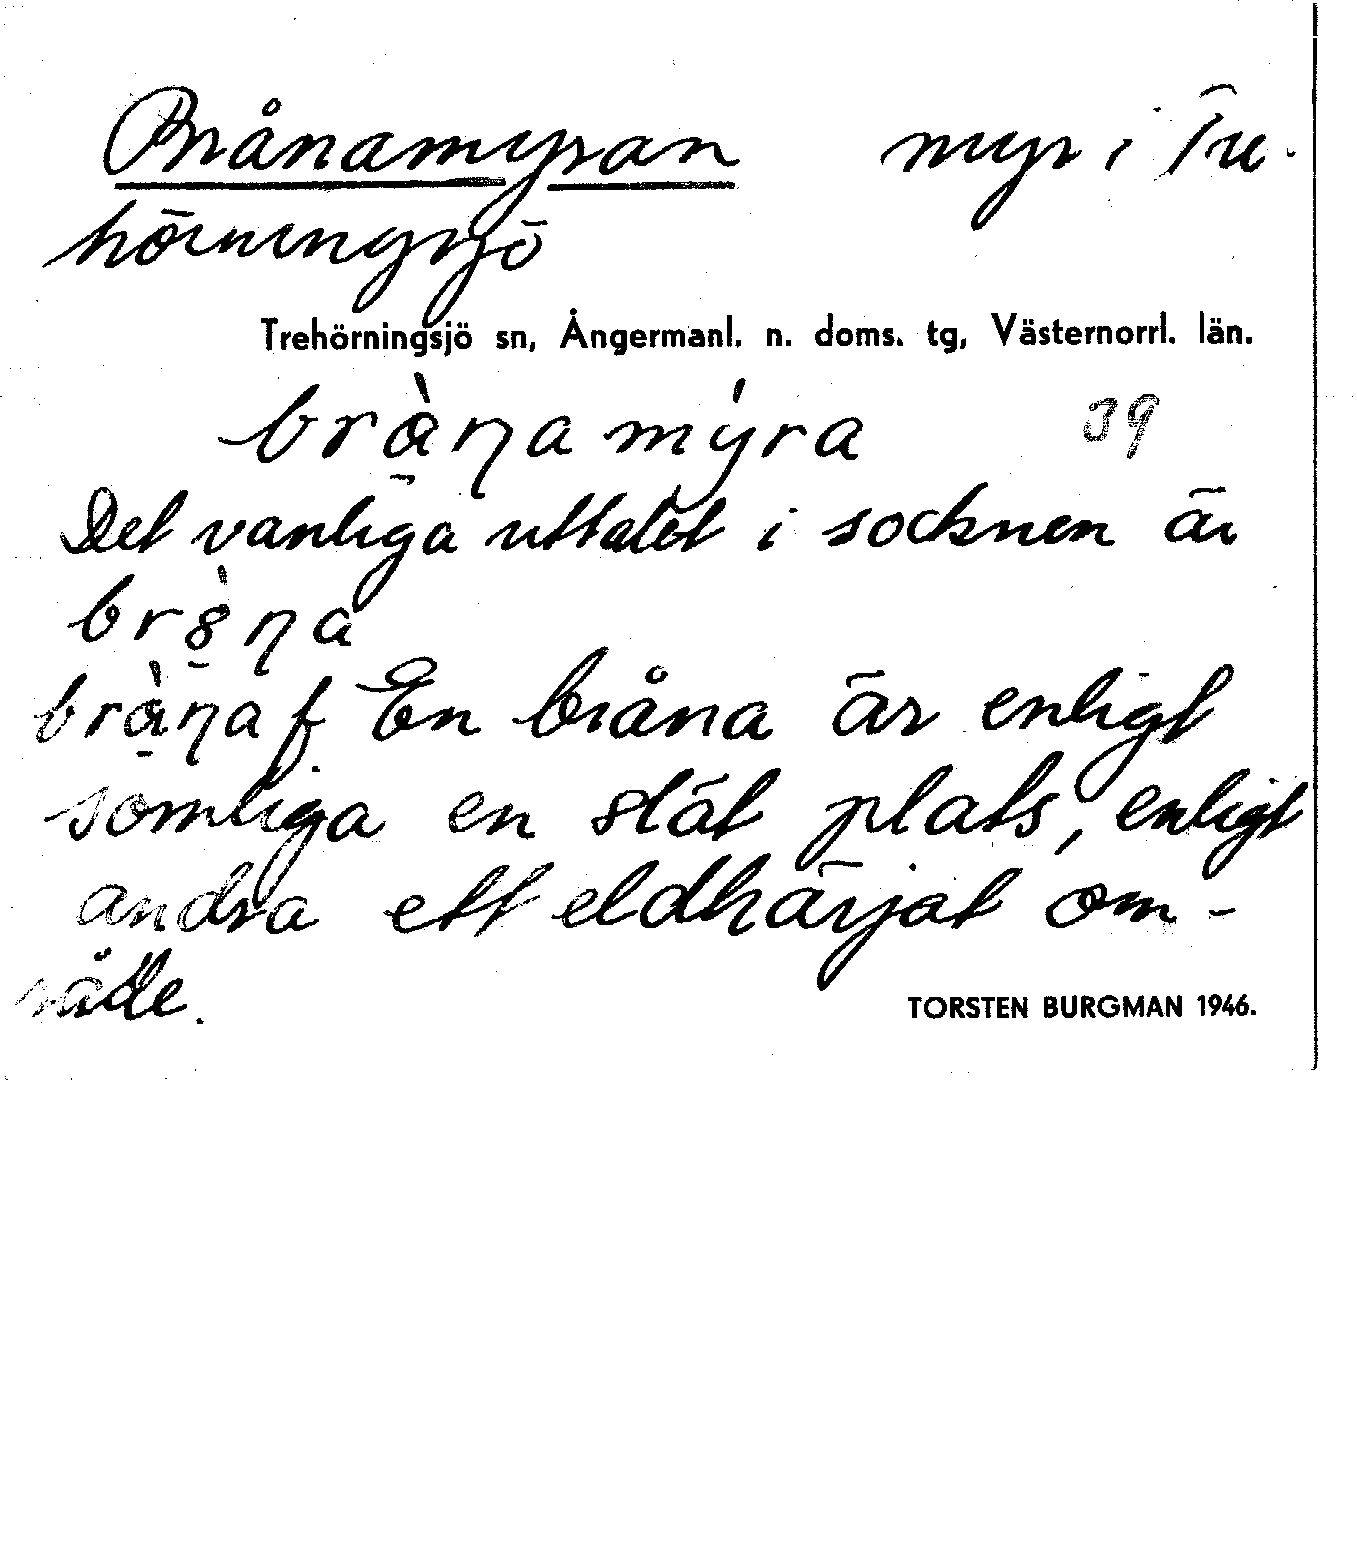 Brånamyran myr i Tre-
hörningsjö
Trehörningsjö sn, Ångermanl. n. doms. tg, Västernorrl. län.
bràṇa mýra 39
Det vanliga uttalet i socknen är
brö̀ṇa
bràṇa f En bråna är enligt
somliga en slät plats, enligt
andra ett eldhärjat om-
råde.
TORSTEN BURGMAN 1946.